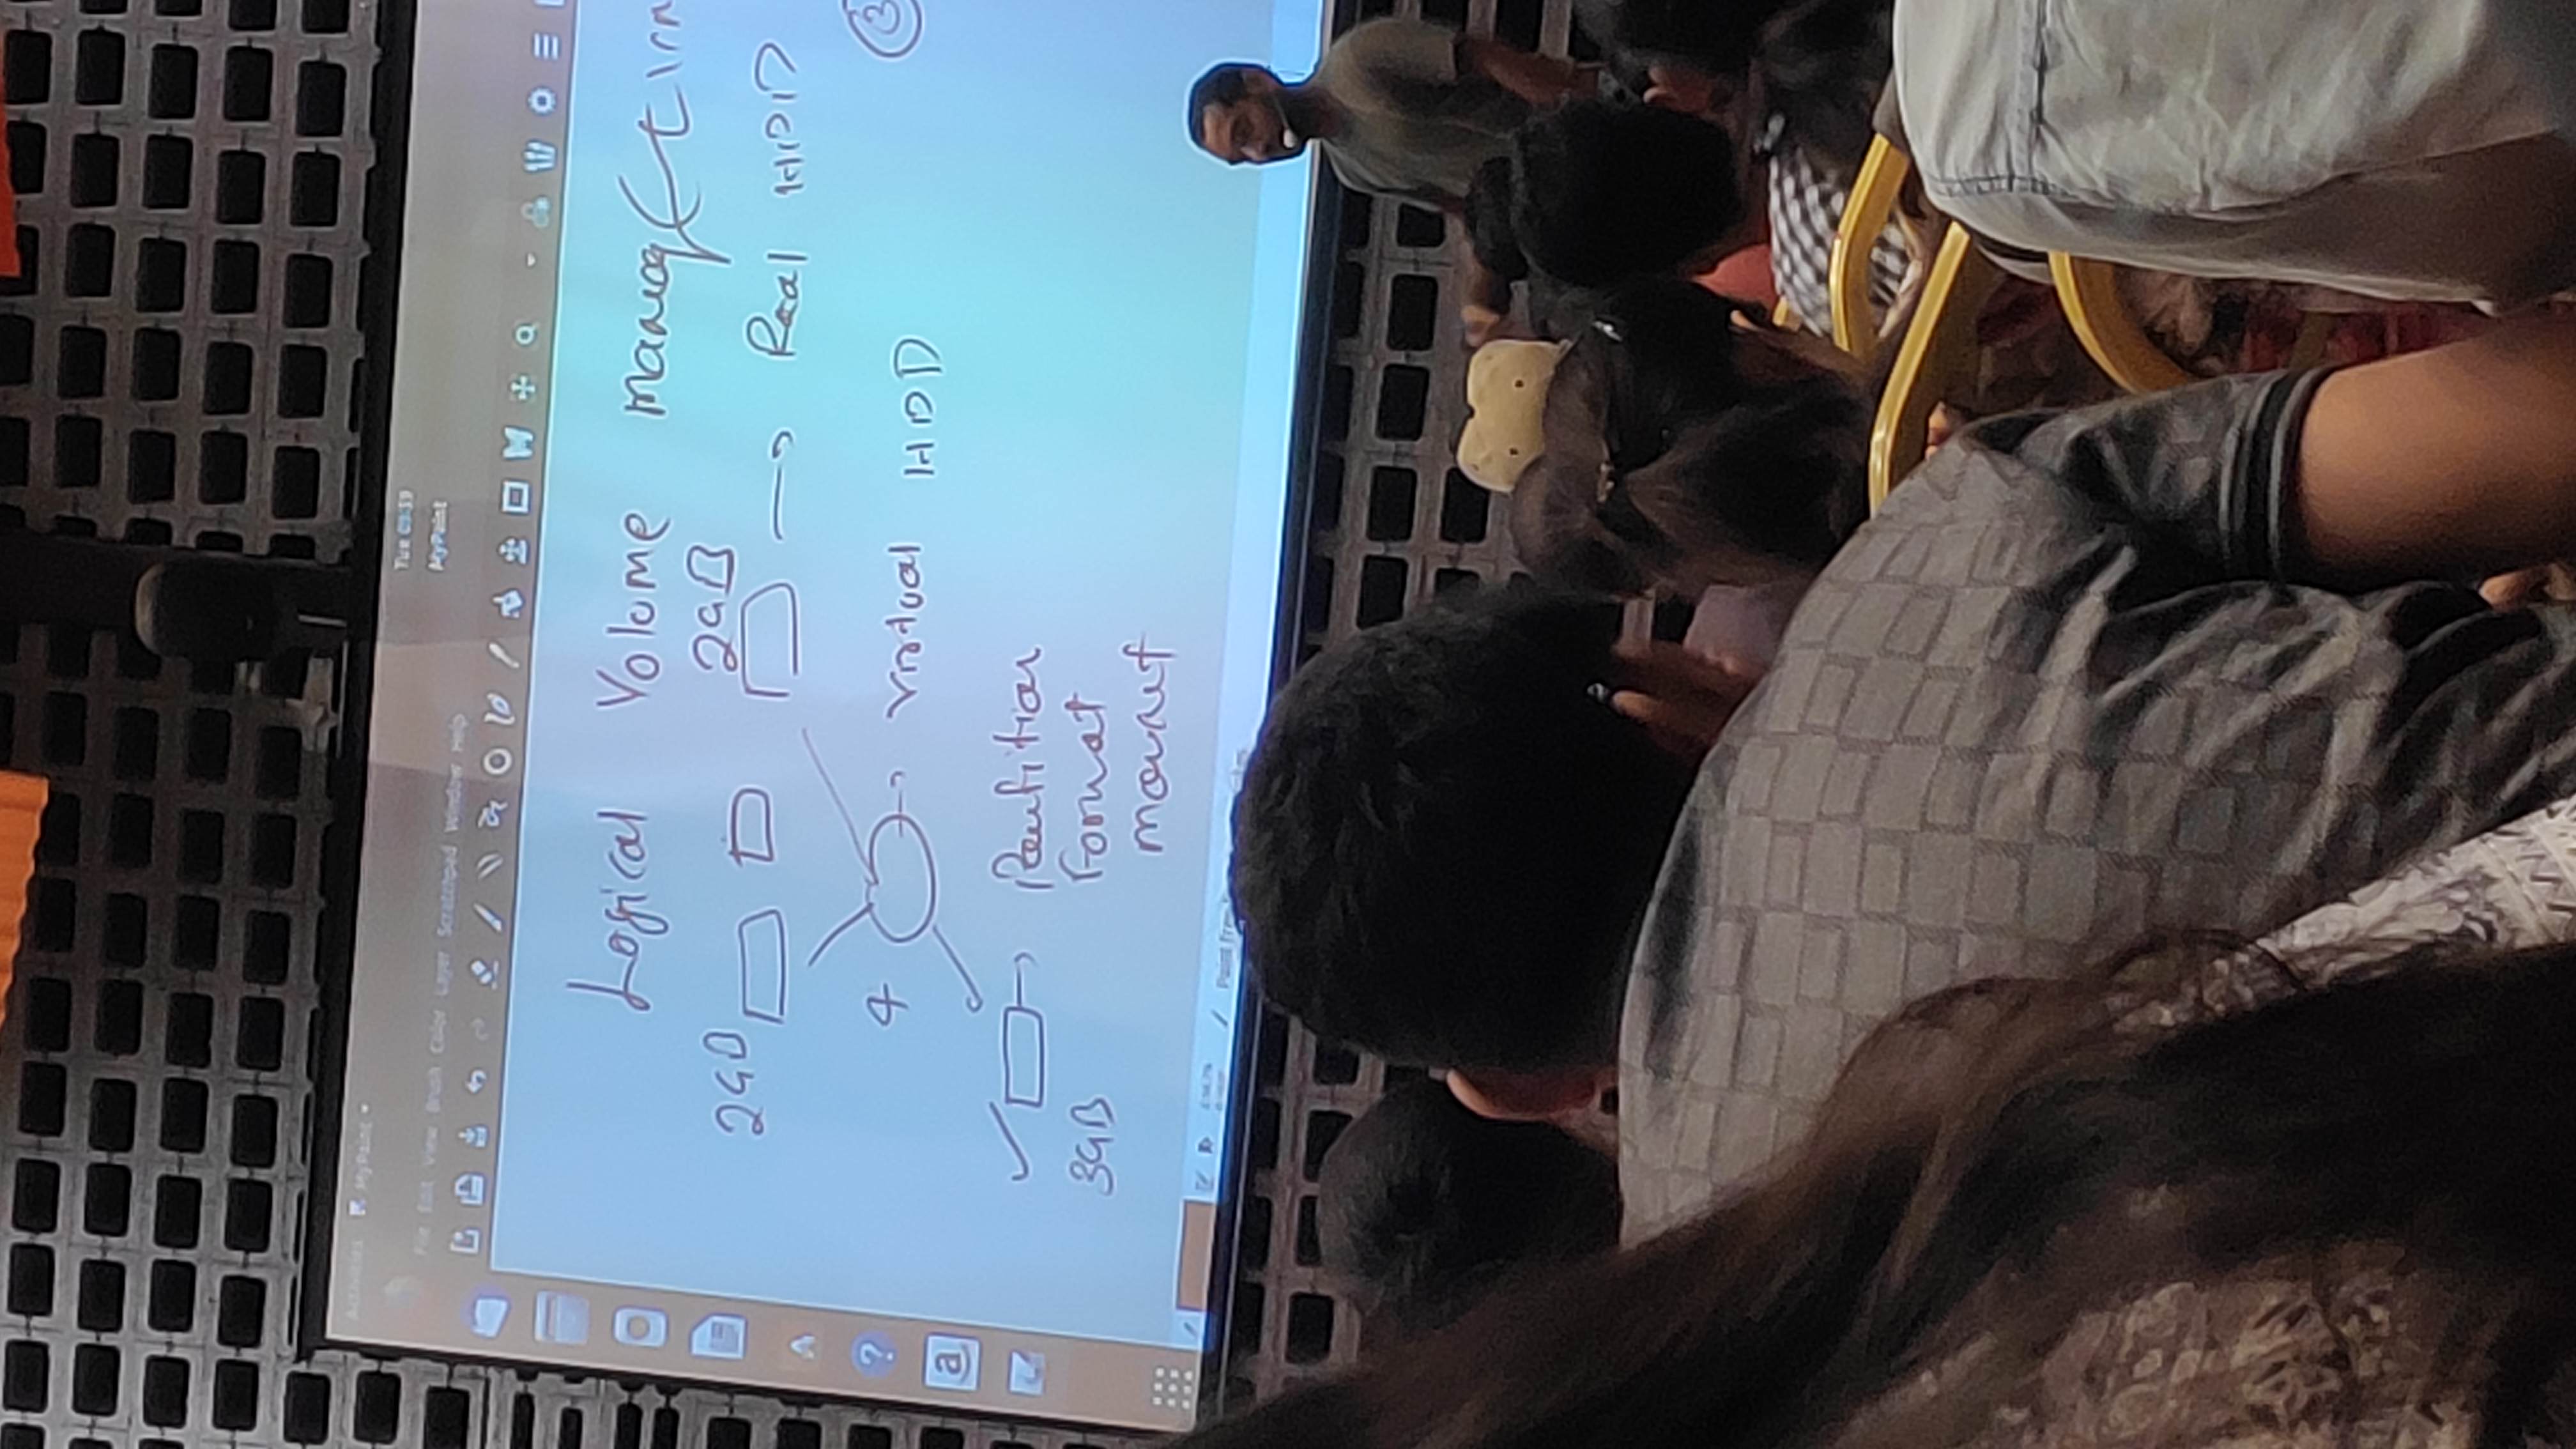 Activities MyPaint
Tue 09:39
MyPaint
File Edit View Brush Color Layer Scratchpad Window Help
Logical Volume
2GB
2GB
Real HDD
4
Virtual HDD
Partition
3GB
Format
mount
?
a
A